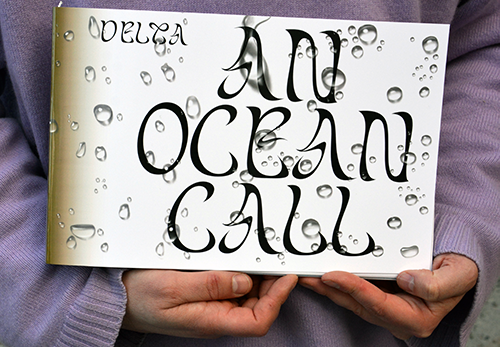 DELTA
AN
OCEAN
CALL